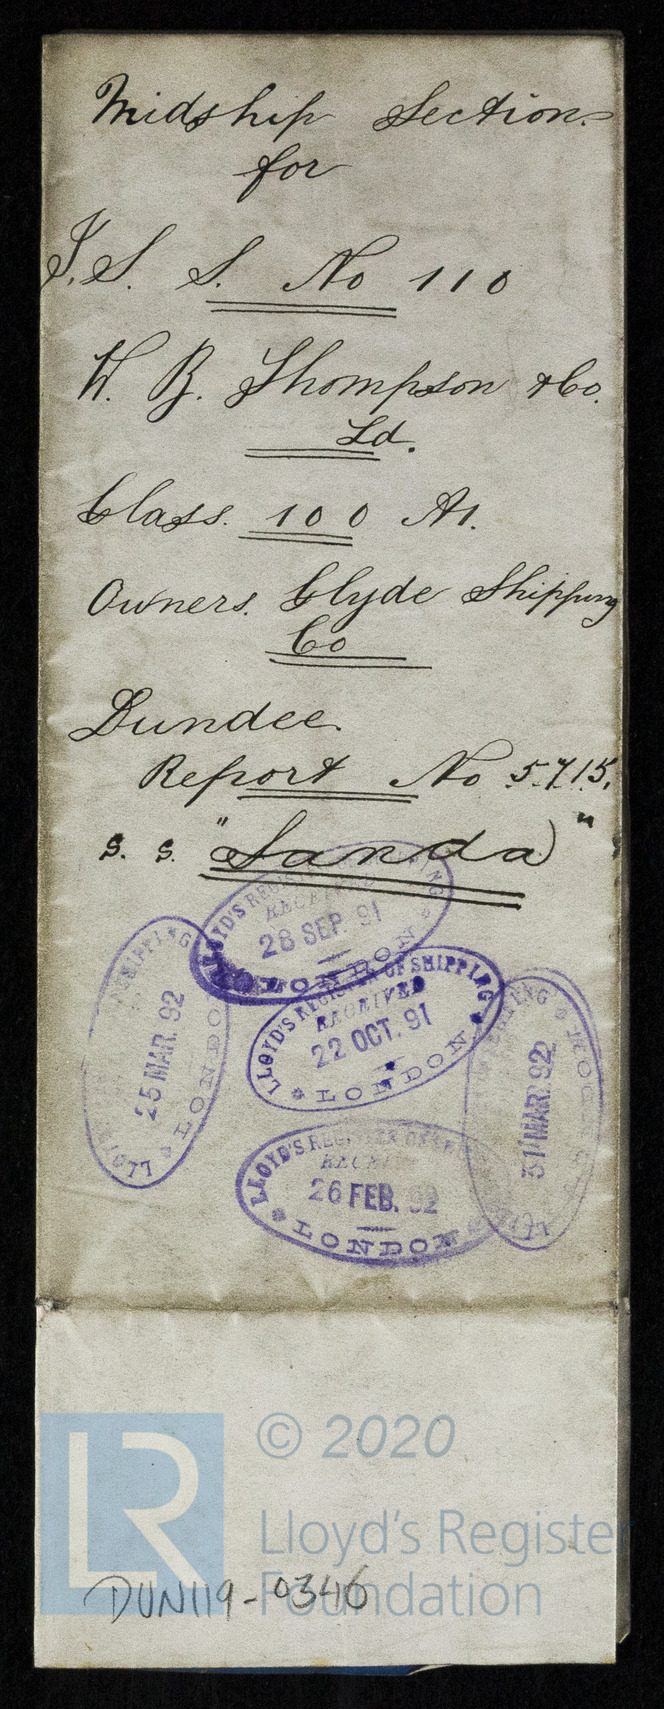 Midship Section
for
I. S. S. No 110
W. B. Thompson & Co.
Ld.
Class. 100 A1.
Owners. Clyde Shipping
Co
Dundee.
Report No 5715.
s. s. "Sanda"
LLOYD'S REGISTER OF SHIPPING
RECEIVED
28 SEP. 91
LONDON
LLOYD'S REGISTER OF SHIPPING
RECEIVED
22 OCT. 91
LONDON
SHIPPING
25 MAR. 92
LONDON
31 MAR. 92
LLOYD'S REGISTER
26 FEB. 92
LONDON
LR
© 2020
Lloyd's Register
Foundation
DUN119-0346